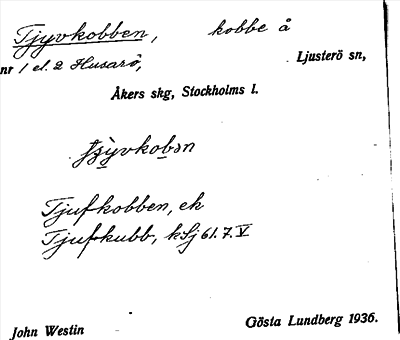 Tjyvkobben, kobbe å
nr 1 el. 2 Husarö, Ljusterö sn,
Åkers skg, Stockholms l.
Tjufkobben, ek
Tjufkubb, kSj 61.7.V
John Westin Gösta Lundberg 1936.